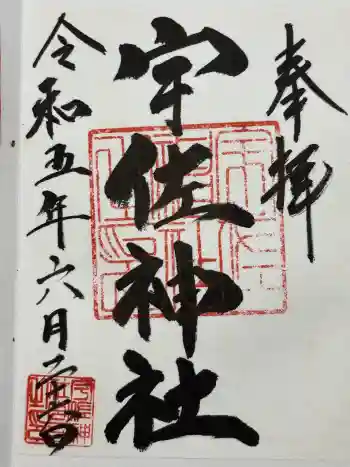 奉拝
宇佐神社
令和五年六月二十一日